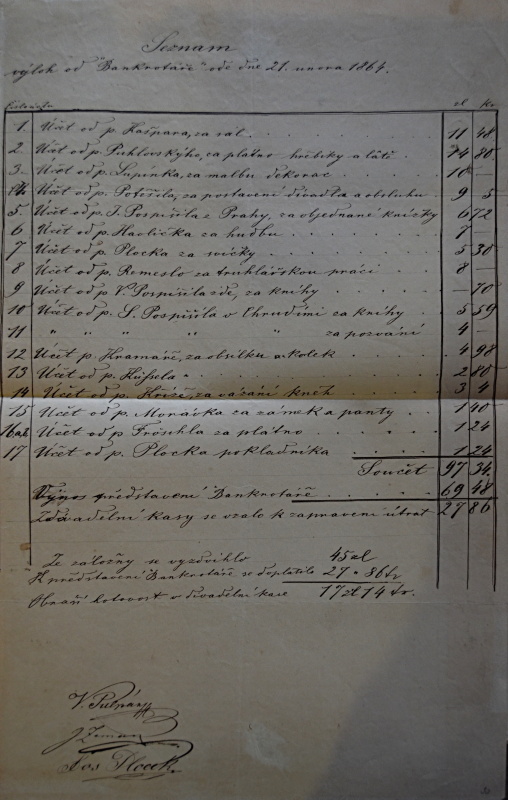 Seznam
výloh od "Bankrotáře" ode dne 21. února 1864.
zl kr
1. Účet od p. Kašpara, za sál 11 48
2. Účet od p. Puhlovskýho, za plátno hřebíky a látě 14 80
3. Účet od p. Šupínka, za malbu dekorac 10 —
4. Účet od p. Potěšila, za postavení divadla a obsluhu 9 5
5. Účet od p. J. Pospíšila z Prahy, za objednané knížky 6 72
6 Účet od p. Havlíčka za hudbu 7 —
7 Účet od p. Plocka za svíčky 5 30
8 Účet od p. Remeslo za truhlářskou práci 8 —
9 Účet od p. V. Pospíšila zde, za knihy — 70
10 Účet od p. S. Pospíšila v Chrudimi za knihy 5 59
11 " " " " " za pozvání 4 —
12 Účet p. Kramáře, za obsílku a kolek 4 98
13 Účet od p. " 2 80
14 Účet od p. za vázání kněh 3 4
15 Účet od p. Morávka za zámek a panty 1 40
16 Účet od p. Fröschla za plátno 1 24
17 Účet od p. Plocka pokladníka 1 24
Součet 97 34
Výnos představení Bankrotáře 69 48
Z divadelní kasy se vzalo k zapravení útrat 27 86
Ze záložny se vyzdvihlo 45 zl
K představení Bankrotáře se doplatilo 27 " 86 kr
Obnáší hotovost v divadelní kase 17 zl 14 kr.
V.
J. Zeman
Jos Plocek